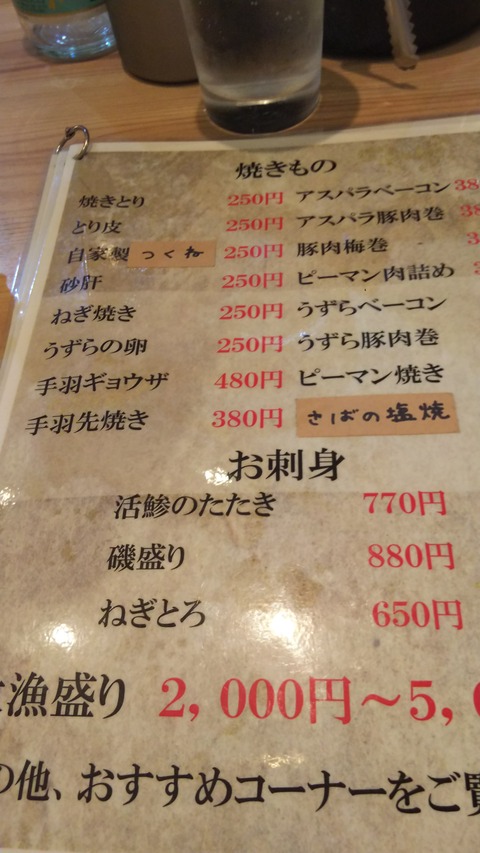 焼きもの
焼きとり 250円
とり皮 250円
自家製つくね 250円
砂肝 250円
ねぎ焼き 250円
うずらの卵 250円
手羽ギョウザ 480円
手羽先焼き 380円
アスパラベーコン 38
アスパラ豚肉巻 38
豚肉梅巻
ピーマン肉詰め
うずらベーコン
うずら豚肉巻
ピーマン焼き
さばの塩焼
お刺身
活鯵のたたき 770円
磯盛り 880円
ねぎとろ 650円
漁盛り 2,000円～5,0
の他、おすすめコーナーをご覧